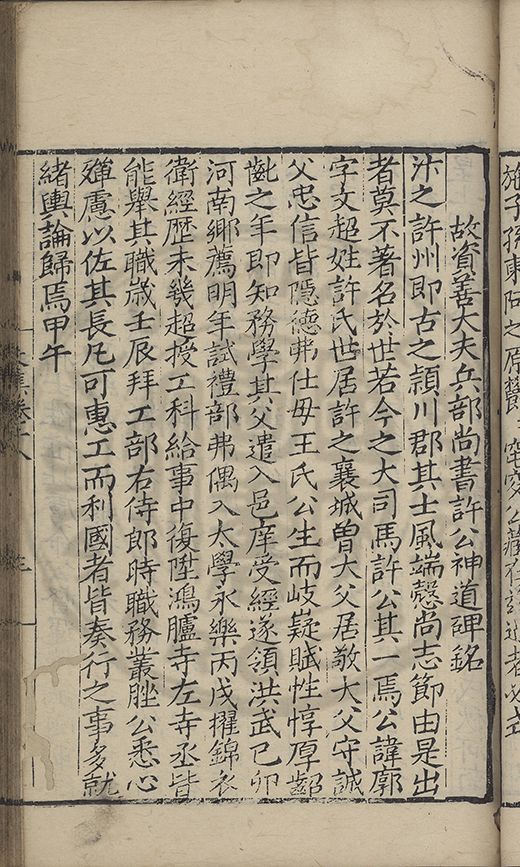 故資善大夫兵部尚書許公神道碑銘
汴之許州即古之潁川郡其士風端慤尚志節由是出
者莫不著名於世若今之大司馬許公其一焉公諱廓
字文超姓許氏世居許之襄城曽大父居敬大父守誠
父忠信皆隱德弗仕母王氏公生而岐嶷賦性惇厚齠
齔之年即知務學其父遣入邑庠受經遂領洪武己卯
河南鄉薦明年試禮部弗偶入太學永樂丙戌擢錦衣
衛經歷未幾超授工科給事中復陞鴻臚寺左寺丞皆
能舉其職歲壬辰拜工部右侍郎時職務叢脞公悉心
殫慮以佐其長凡可惠工而利國者皆奏行之事多就
緒輿論歸焉甲午